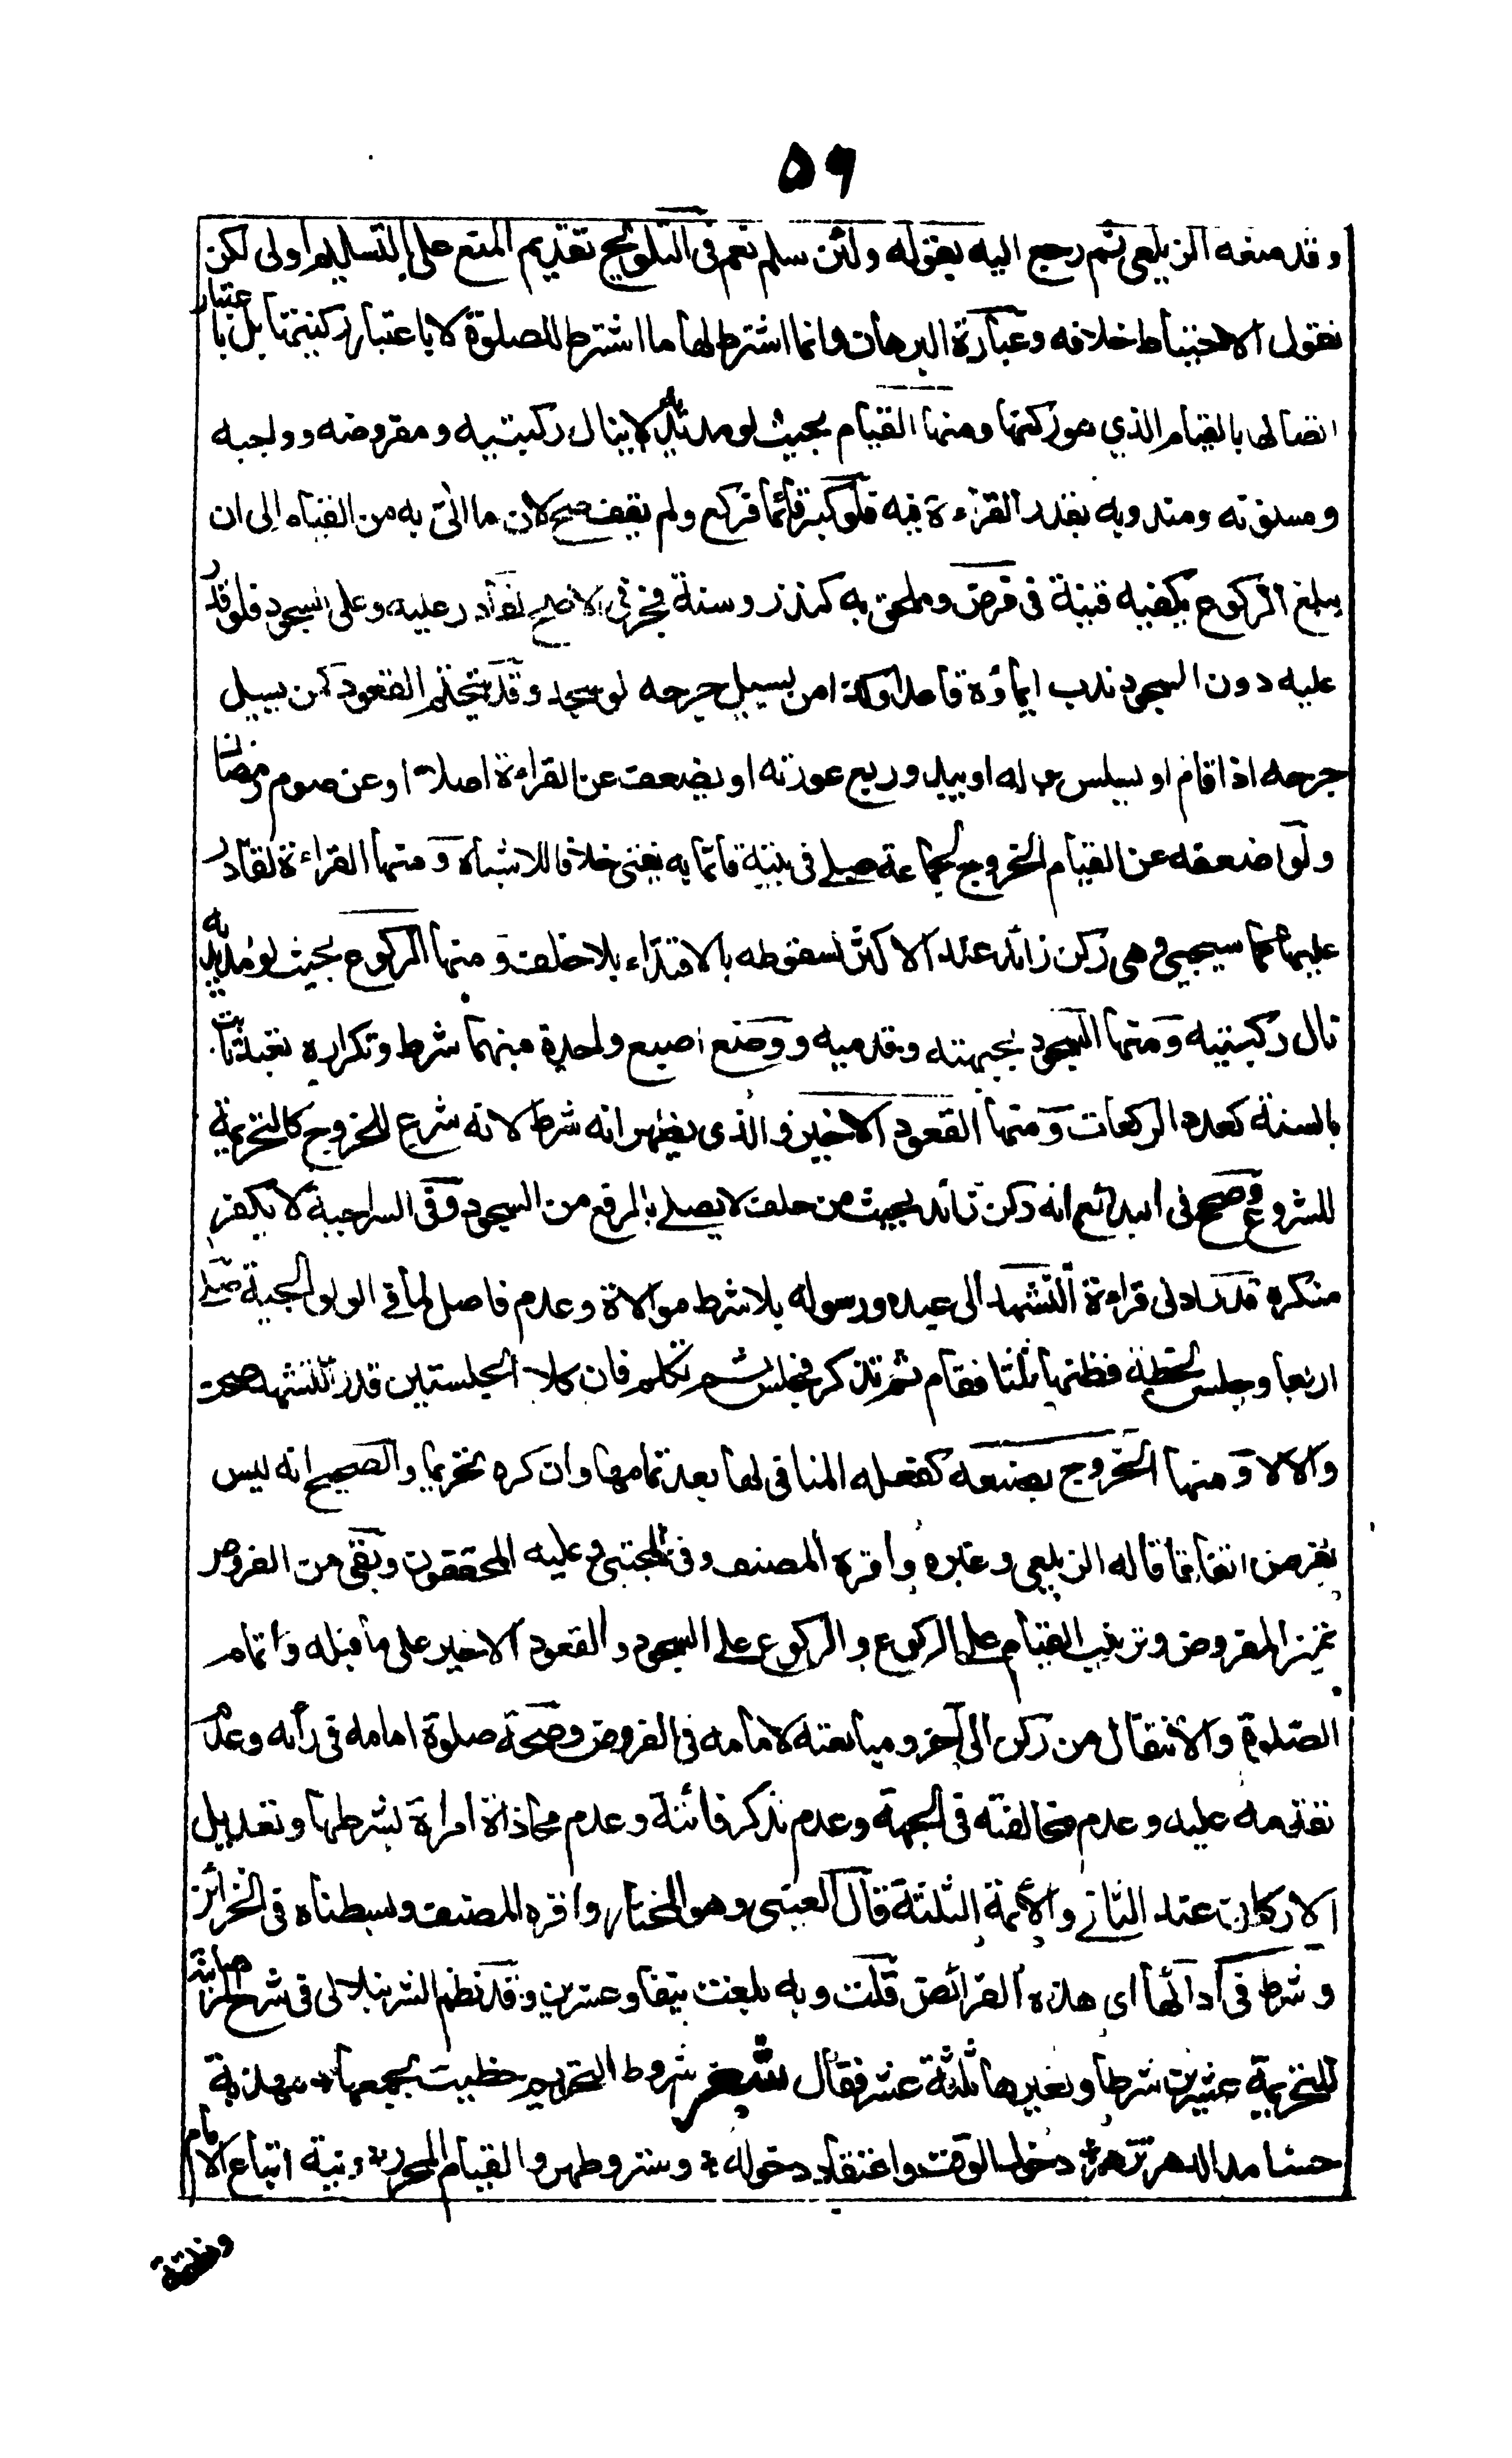 ٥٦
وقد منعه الزيلعي ثم رجع اليه بقوله ولئن سلم نعم في التلويح تقديم المنع على التسليم اولى لكن
نقول الاحتياط خلافه وعبارة البرهان وانما اشترط لها ما اشترط للصلوة لا باعتبار ركنيتها بل باعتبار
اتصالها بالقيام الذي هو ركنها ومنها القيام بحيث لو مد يديه لا ينال ركبتيه ومفروضه وواجبه
ومسنونه ومندوبه بقدر القراءة فيه فلو كبر قائما فركع ولم يقف صح لان ما اتى به من القيام الى ان
يبلغ الركوع يكفيه قنية في فرض وملحق به كنذر وسنة فجر في الاصح لقادر عليه وعلى السجود فلو قدر
عليه دون السجود ندب ايماؤه قاعدا وكذا من يسيل جرحه لو سجد وقد يتحتم القعود كمن يسيل
جرحه اذا قام او يسلس بوله او يبدو ربع عورته او يضعف عن القراءة اصلا او عن صوم رمضان
ولو اضعفه عن القيام الخروج لجماعة صلى في بيته قائما به يفتى خلافا للاشباه ومنها القراءة لقادر
عليها كما سيجيئ وهي ركن زائد عند الاكثر لسقوطه بالاقتداء بلا خلف ومنها الركوع بحيث لو مد يديه
نال ركبتيه ومنها السجود بجبهته وقدميه ووضع اصبع واحدة منهما شرط وتكراره تعبد ثابت
بالسنة كعدد الركعات ومنها القعود الاخير والذي يظهر انه شرط لانه شرع للخروج كالتحريمة
للشروع وصحح في البدائع انه ركن زائد يحنث من حلف لا يصلى بالرفع من السجود وفي السراجية لا يكفر
منكره قدر ادنى قراءة التشهد الى عبده ورسوله بلا شرط موالاة وعدم فاصل لما في الولوالجية صلى
اربعا وجلس لحظة فظنها ثلثا فقام ثم تذكر فجلس ثم تكلم فان كلا الجلستين قدر التشهد صحت
والا لا ومنها الخروج بصنعه كفعله المنافي لها بعد تمامها وان كره تحريما والصحيح انه ليس
بفرض اتفاقا قاله الزيلعي وغيره واقره المصنف وفي المجتبى وعليه المحققون وبقى من الفروض
تمييز المفروض وترتيب القيام على الركوع والركوع على السجود والقعود الاخير على ما قبله واتمام
الصلوة والانتقال من ركن الى آخر ومتابعته لامامه في الفروض وصحة صلوة امامه في رأيه وعدم
تقدمه عليه وعدم مخالفته في الجهة وعدم تذكر فائتة وعدم محاذاة امراة بشرطها وتعديل
الاركان عند الثاني والائمة الثلثة قال العيني وهو المختار واقره المصنف وبسطناه في الخزائن
وشرط في ادائها اى هذه الفرائض قلت وبه بلغت نيفا وعشرين وقد نظم الشرنبلالى في شرحه
للتحريمة عشرين شرطا ولغيرها ثلثة عشر فقال شعر شروط التحريم حظيت بجمعها * مهذبة
حسنا مدا الدهر تزهر * دخول الوقت واعتقاد دخوله * وستر وطهر والقيام المحرر * ونية اتباع الامام